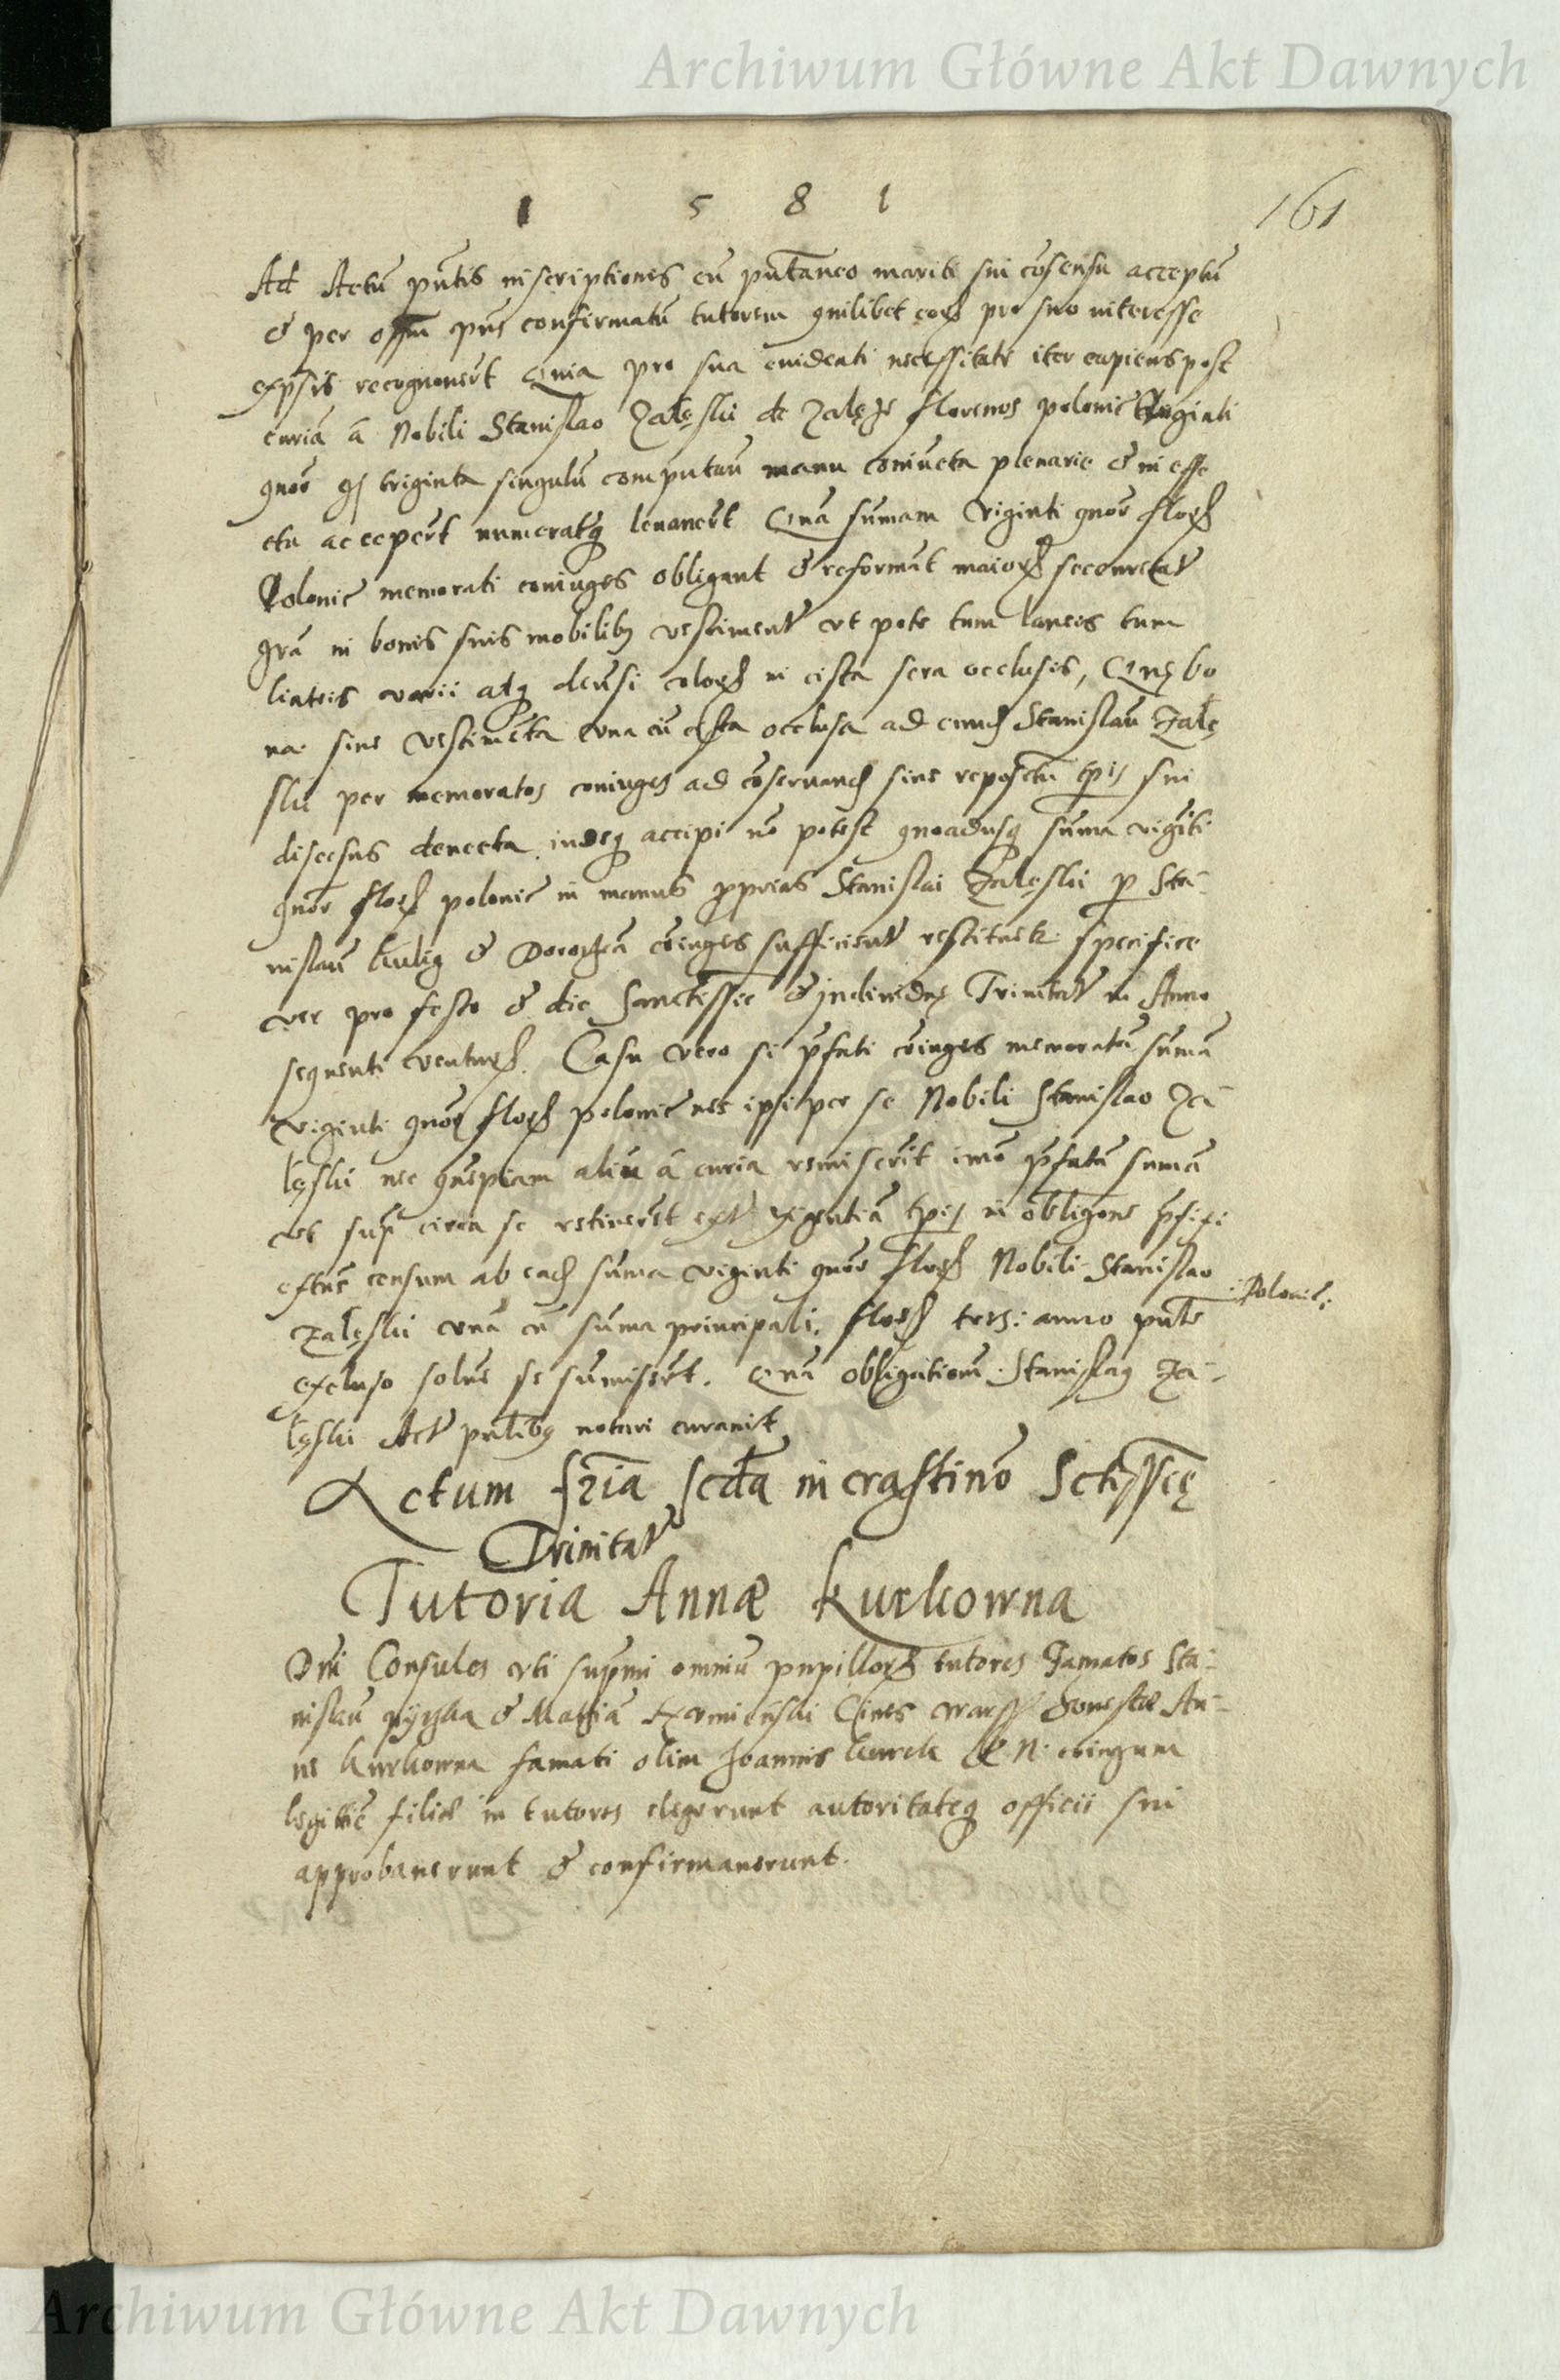 Archiwum Główne Akt Dawnych
1 5 8 1
161
Ad Actū pñtis inscriptionis cū pñtaneo mariti sui cōsensu acceptū
& per offm̄ pñs confirmatū tutorem quilibet eorꝝ pro suo interesse
exp̃ssis recognouer̄t Quia pro sua euidenti necessitate iter capiens post
curiā à Nobili Stanislao Zalęski de Zalęże florenos polonic̄ Viginti
quōr q̃ triginta singulū computan̄ manu coniuncta plenarie & in effe
ctu acceper̄t numeratq̃ leuauer̄t Quā sūmam viginti quōr florꝝ
Polonic̄ memorati coniuges obligant & reformāt maiorꝝ
grā in bonis suis mobilibꝫ vestiment̄ vt pote tum laneis tum
linteis varii atq̃ diuersi colorꝝ in cista sera occlusis, Quę bo
na siue vestimēta vna cū cista occlusa ad eundē Stanislaū Zalę
ski per memoratos coniuges ad cōseruandū siue reposetū tp̃is sui
discessus deuecta indeq̃ accipi nō potest quoadusq̃ sūma vigīti
quōr florꝝ polonic̄ in manus proprias Stanislai Zalęskii p Sta-
nislaū Kulig & Dorotheā cōiuges sufficient̄ restituet̄ specifice
ver pro festo & die Sanctissīe & Indiuiduę Trinitat̄ in Anno
sequenti venturꝝ. Casu vero si p̃fati cōiuges memoratā sūmā
viginti quōr florꝝ polonic̄ nec ipsi per se Nobili Stanislao Za-
lęskii nec quēpiam aliū à curia remiserīt imo p̃fatā sumā
vt supr̄ circa se retinerēt ext̄ exigentiā tp̃is in obligōne p̃fixi
extūc censum ab eadē sūma viginti quōr florꝝ Nobili Stanislao
Zalęskii vnā cū sūma principali, florꝝ ters: anno pñte :Polonic̄:
excluso soluē se sūmiser̄t. Quā obligationē Stanislaꝰ Za-
lęskii Act̄ pñtibꝰ notari curauit
Actum fr̄ia scd̄a in crastino Sctissię
Trinitat̄
Tutoria Annæ Kurkowna
Dñi Consules vti supr̄mi omniū pupillorꝝ tutores Famatos Sta-
nislaū & Mathiā Ciues Warss̄ honestæ An-
nę Kurkowna famati olim Joannis Kurek & N: cōiugum
legittīe filiæ in tutores elegerunt autoritateq̃ officii sui
approbauerunt & confirmauerunt.
Archiwum Główne Akt Dawnych